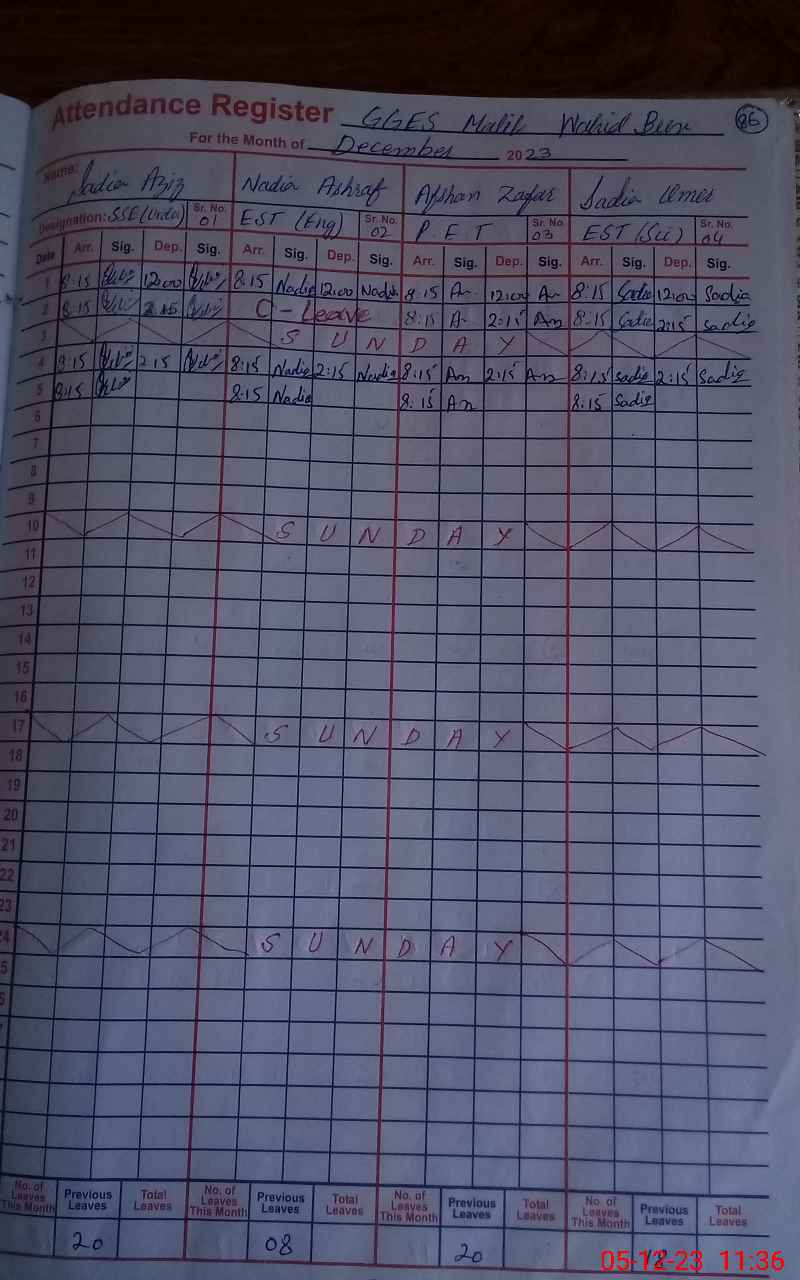 Attendance Register GGES Malik Wahid Bux 86
For the Month of December 2023
Name: Sadia Aziz Nadia Ashraf Afshan Zafar Sadia Umer
Designation: SSE (Urdu) Sr. No. 01 EST (Eng) Sr. No. 02 P E T Sr. No. 03 EST (Sci) Sr. No. 04
Date Arr. Sig. Dep. Sig. Arr. Sig. Dep. Sig. Arr. Sig. Dep. Sig. Arr. Sig. Dep. Sig.
1 8:15 12:00 8:15 Nadia 12:00 Nadia 8:15 An 12:00 An 8:15 Sadia 12:00 Sadia
2 8:15 2:15 C - Leave 8:15 An 2:15 An 8:15 Sadia 2:15 Sadia
3 S U N D A Y
4 8:15 2:15 8:15 Nadia 2:15 Nadia 8:15 An 2:15 An 8:15 Sadia 2:15 Sadia
5 8:15 8:15 Nadia 8:15 An 8:15 Sadia
6
7
8
9
10 S U N D A Y
11
12
13
14
15
16
17 S U N D A Y
18
19
20
21
22
23
24 S U N D A Y
5
6
No. of Leaves This Month Previous Leaves Total Leaves No. of Leaves This Month Previous Leaves Total Leaves No. of Leaves This Month Previous Leaves Total Leaves No. of Leaves This Month Previous Leaves Total Leaves
20 08 20
05-12-23 11:36